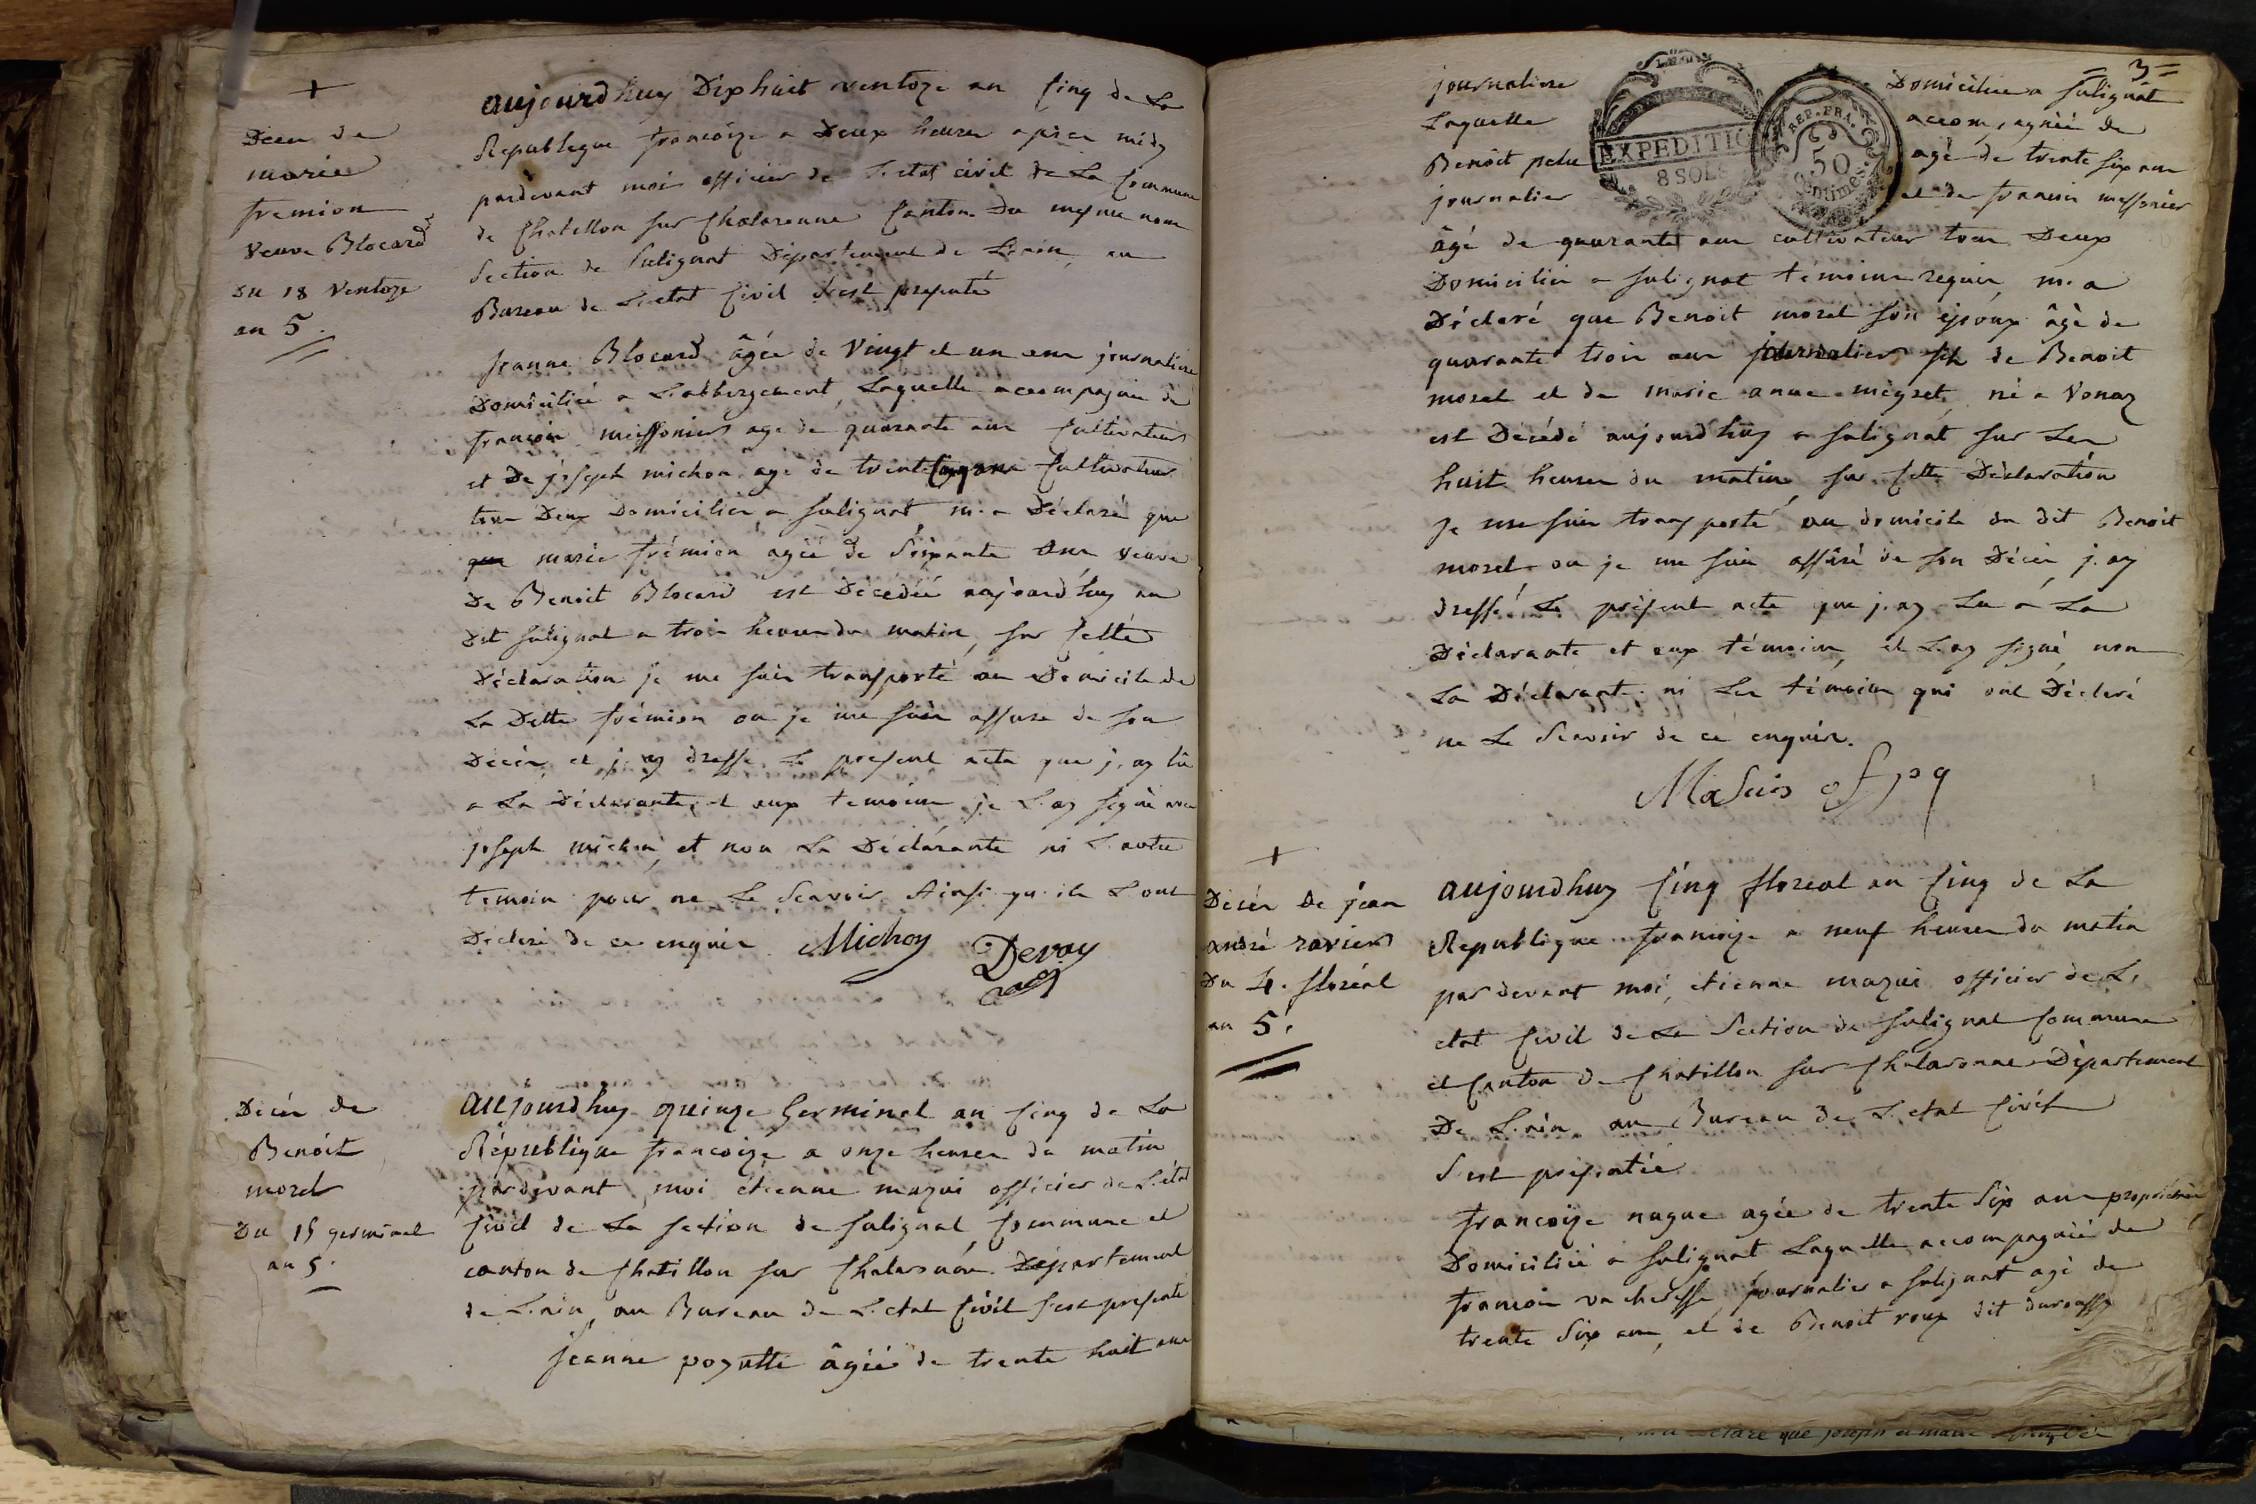 +
Déces de
marie
fremion
veuve Blocard
du 18 ventoze
an 5.
aujourdhuy Dixhuit ventoze an cinq de La
Republique francoize a Deux heures apres midy
pardevant moi officier de L'etat civil de La Commune
de Chatillon sur Chalaronne Canton Du mesme nom
Section de Sulignat Departement de L'ain, au
Bureau de L'etat Civil s'est presenté
jeanne Blocard âgée de Vingt et un ans journaliere
Domiciliée a L'abbergement, Laquelle accompagnée de
francois meissonier age de quarante ans Cultivateur
et De joseph michon agé de trente Cultivateur
tous Deux Domiciliés a sulignat m'a Déclaré que
que marie frémion agée de soixante ans veuve
De Benoit Blocard est Décédée aujourdhuy au
Dit sulignat a trois heures du matin, sur cette
Déclaration je me suis transporté au Domicile de
La Ditte frémion ou je me suis assuré de son
Décès, et j'ay dressé Le present acte que j'ay lû
a La Déclarante, et aux temoins je L'ay signé avec
joseph michon, et non La Déclarante ni L'autre
temoin pour ne Le Scavoir Ainsi qu'ils L'ont
Déclaré de ce enquis Michon Devay
Décès de
Benoit
morel
Du 15 germinal
an 5.
aujourdhuy quinze Germinal an cinq de La
République francoize a onze heures du matin
pardevant moi etienne mazui officier de L'état
Civil de La section de sulignat Commune et
canton de Chatillon sur Chalaronne Département
de L'ain, au Bureau de L'etat Civil s'est presenté
jeanne pozatte âgée de trente huit ans
= 3 =
journaliere Domiciliée a sulignat
Laquelle accompagnée de
Benoit pelu agé de trente six ans
journalier et de francois messonier
EXPEDITIO
8 SOLS
REP. FRA.
50
Centimes
âgé de quarante ans cultivateur tous Deux
Domiciliés a sulignat témoins requis, m'a
Déclaré que Benoit morel son epoux âgé de
quarante trois ans journalier fils de Benoit
morel et de marie anne mégret, né a Vonaz
est Décédé aujourd'huy a sulignat sur Les
huit heures du matin, sur cette Déclaration
je me suis transporté au domicile du dit Benoit
morel ou je me suis assuré de son Décès j'ay
dressé Le présent acte que j'ay Lu a La
Déclarante et aux témoins, et L'ay signé, non
La Déclarante ni Les témoins qui ont Déclaré
ne Le Scavoir de ce enquis.
+
Décès de jean
andré ravier
Du 4. floréal
an 5.
aujourdhuy Cinq floreal an Cinq de La
Republique francoize a neuf heures du matin
par devant moi, etienne mazui officier de L'
etat Civil de La Section de sulignat Commune
et Canton de Chatillon sur Chalaronne Département
De L'ain au Bureau de L'etat Civil
S'est présentée
francoise nugue agée de trente Six ans propriétaire
Domiciliée a sulignat Laquelle accompagnée de
francois vacheresse, journalier a sulignat agé de
trente Six ans, et de Benoit roux dit